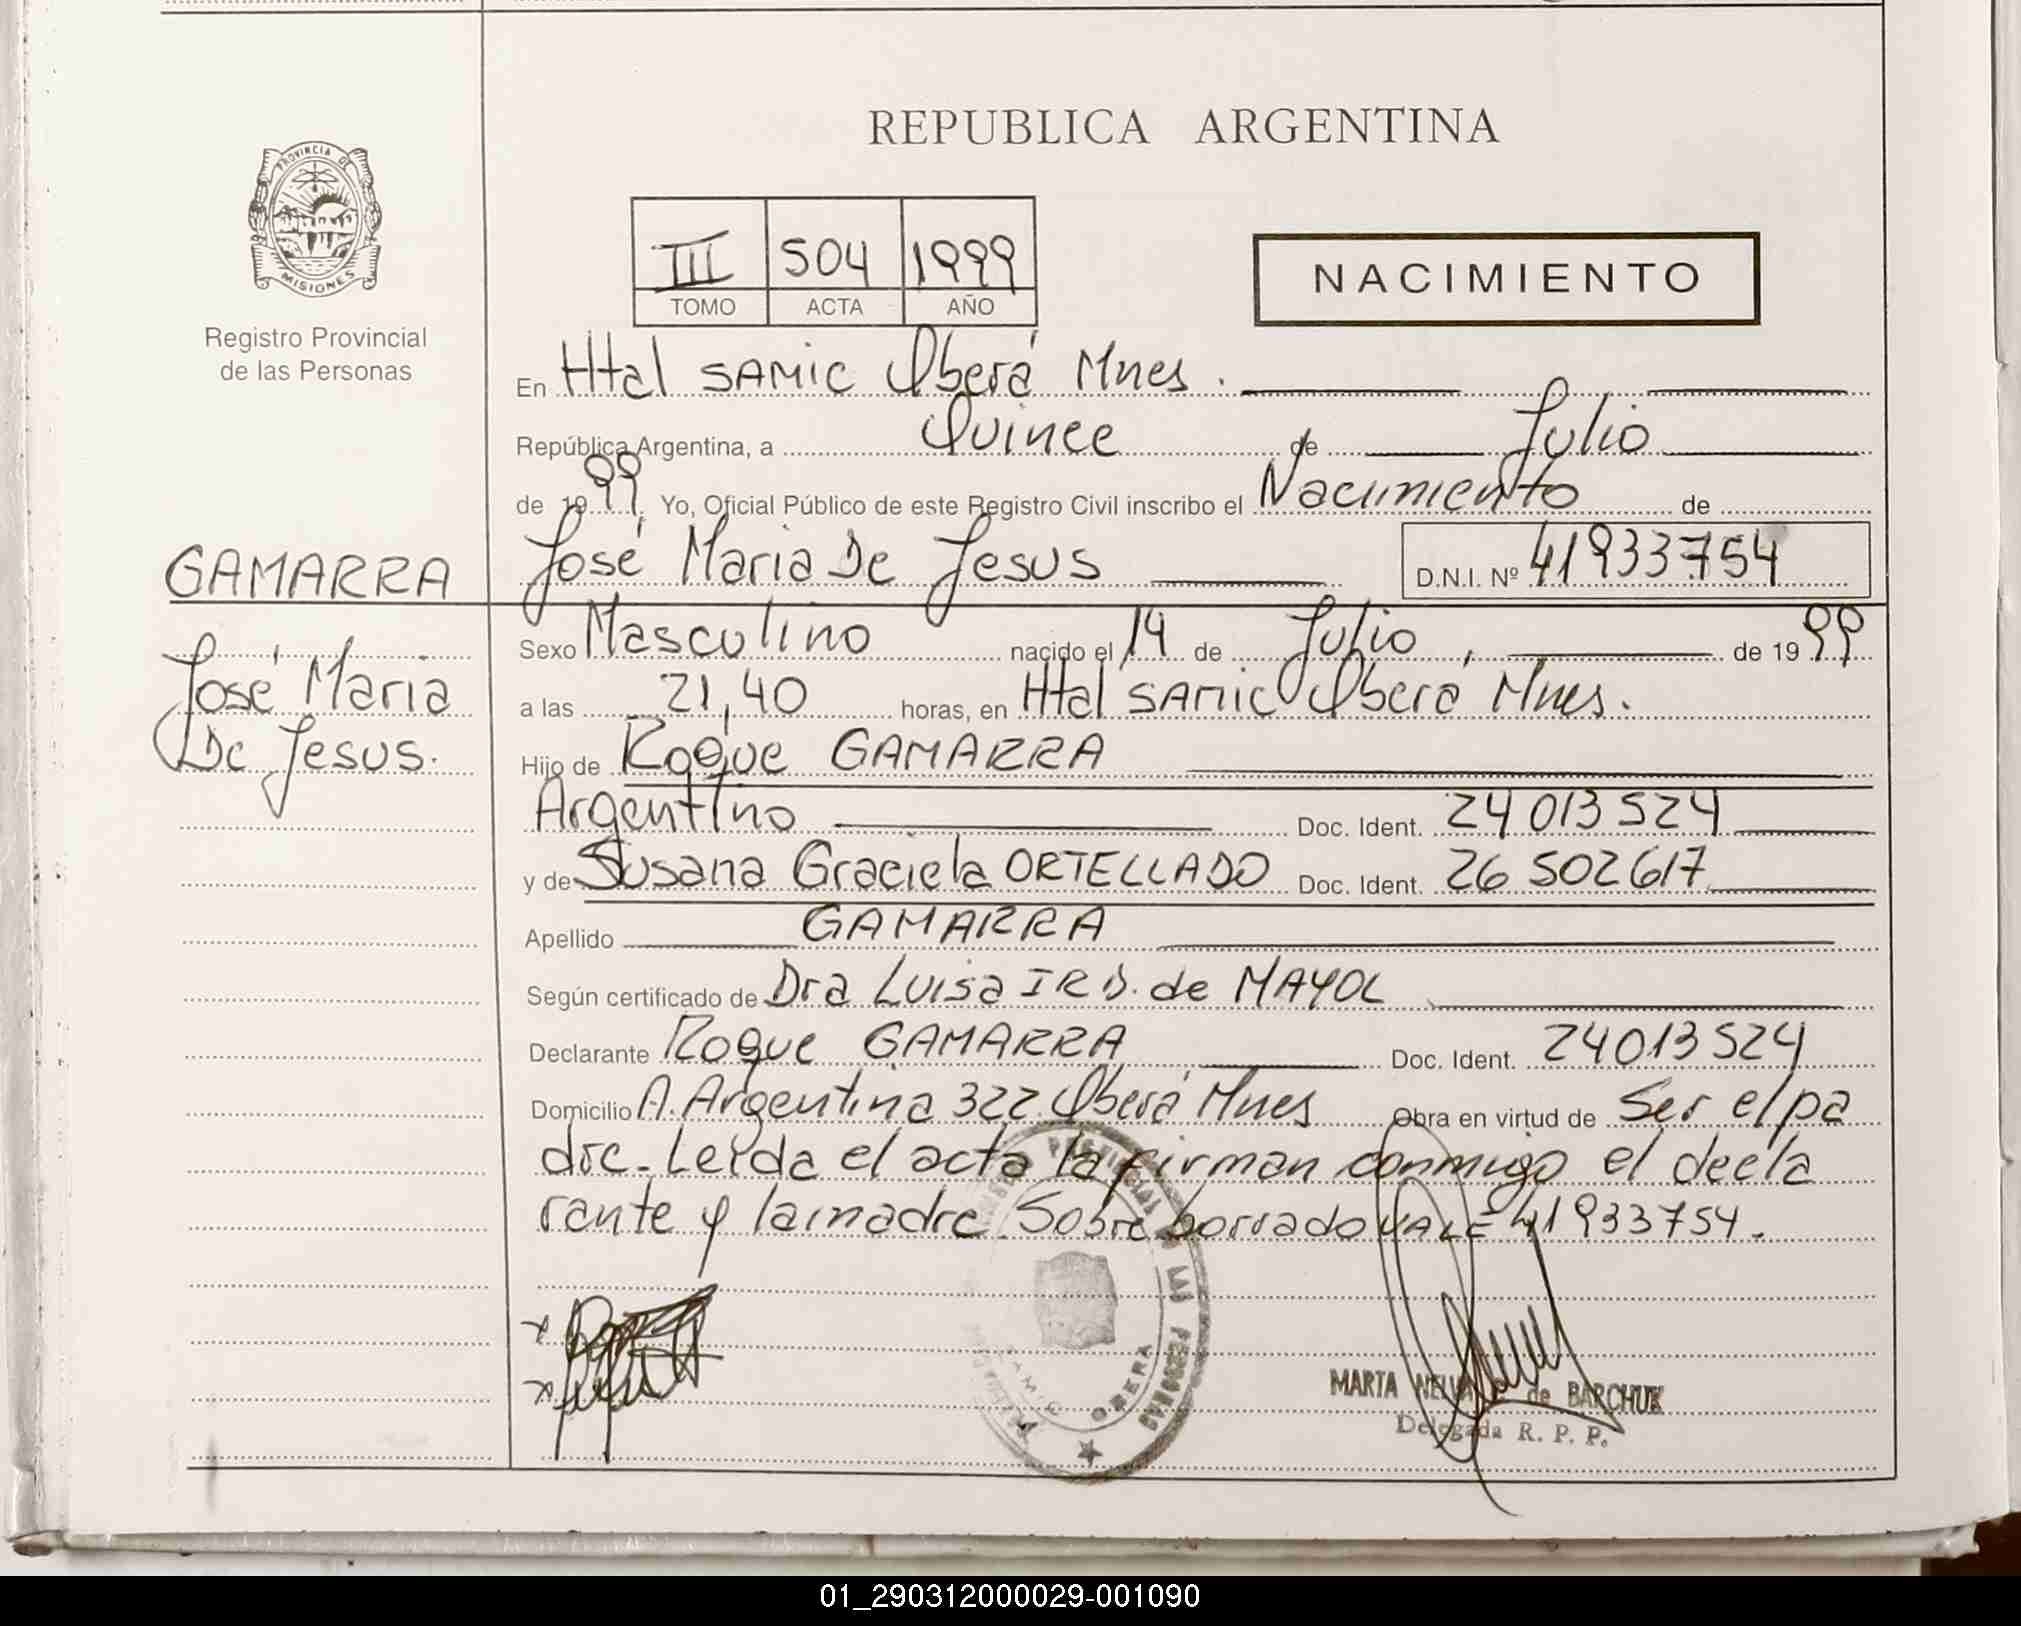 REPUBLICA ARGENTINA
PROVINCIA DE
MISIONES
Registro Provincial
de las Personas
III 504 1999
TOMO ACTA AÑO
NACIMIENTO
En Htal SAMIC Oberá Mnes.
República Argentina, a Quince de Julio
de 1999. Yo, Oficial Público de este Registro Civil inscribo el Nacimiento de
GAMARRA José Maria De Jesus D.N.I. Nº 41933754
Sexo Masculino nacido el 14 de Julio, de 1999
José Maria
De Jesus.
a las 21,40 horas, en Htal SAMIC Oberá Mnes.
Hijo de Roque GAMARRA
Argentino Doc. Ident. 24013524
y de Susana Graciela ORTELLADO Doc. Ident. 26502617
Apellido GAMARRA
Según certificado de Dra Luisa I R D. de MAYOL
Declarante Roque GAMARRA Doc. Ident. 24013524
Domicilio A. Argentina 322. Oberá Mnes Obra en virtud de Ser el pa
dre. Leida el acta la firman conmigo el decla
rante y la madre. Sobre borrado VALE 41933754.
PROVINCIAL DE LAS PERSONAS
SAMIC OBERA
MARTA NELVA de BARCHUK
Delegada R. P. P.
01_290312000029-001090